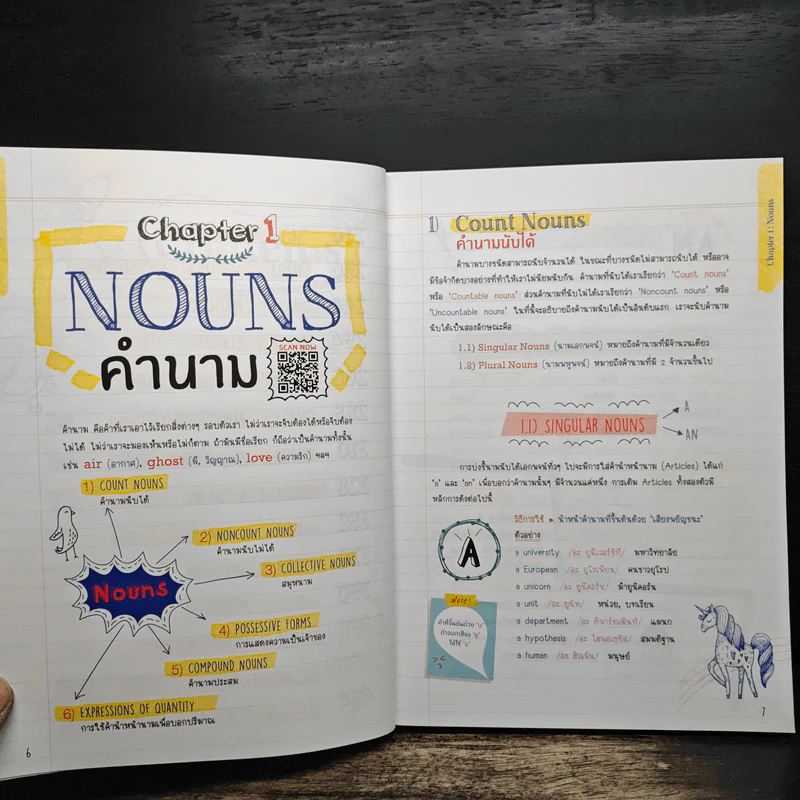 Chapter 1
NOUNS
คำนาม
SCAN NOW
คำนาม คือคำที่เราเอาไว้เรียกสิ่งต่างๆ รอบตัวเรา ไม่ว่าเราจะจับต้องได้หรือจับต้อง
ไม่ได้ ไม่ว่าเราจะมองเห็นหรือไม่ก็ตาม ถ้ามันมีชื่อเรียก ก็ถือว่าเป็นคำนามทั้งนั้น
เช่น air (อากาศ), ghost (ผี, วิญญาณ), love (ความรัก) ฯลฯ
1) COUNT NOUNS
คำนามนับได้
2) NONCOUNT NOUNS
คำนามนับไม่ได้
3) COLLECTIVE NOUNS
สมุหนาม
Nouns
4) POSSESSIVE FORMS
การแสดงความเป็นเจ้าของ
5) COMPOUND NOUNS
คำนามประสม
6) EXPRESSIONS OF QUANTITY
การใช้คำนำหน้านามเพื่อบอกปริมาณ
6
Chapter 1: Nouns
1) Count Nouns
คำนามนับได้
คำนามบางชนิดสามารถนับจำนวนได้ ในขณะที่บางชนิดไม่สามารถนับได้ หรืออาจ
มีข้อจำกัดบางอย่างที่ทำให้เราไม่นิยมนับกัน คำนามที่นับได้เราเรียกว่า "Count nouns"
หรือ "Countable nouns" ส่วนคำนามที่นับไม่ได้เราเรียกว่า "Noncount nouns" หรือ
"Uncountable nouns" ในที่นี้จะอธิบายถึงคำนามนับได้เป็นอันดับแรก เราจะนับคำนาม
นับได้เป็นสองลักษณะคือ
1.1) Singular Nouns (นามเอกพจน์) หมายถึงคำนามที่มีจำนวนเดียว
1.2) Plural Nouns (นามพหูพจน์) หมายถึงคำนามที่มี 2 จำนวนขึ้นไป
1.1) SINGULAR NOUNS
A
AN
การบ่งชี้นามนับได้เอกพจน์ทั่วๆ ไปจะมีการใส่คำนำหน้านาม (Articles) ได้แก่
"a" และ "an" เพื่อบอกว่าคำนามนั้นๆ มีจำนวนแค่หนึ่ง การเติม Articles ทั้งสองตัวมี
หลักการดังต่อไปนี้
A
วิธีการใช้ ▸ นำหน้าคำนามที่ขึ้นต้นด้วย "เสียงพยัญชนะ"
ตัวอย่าง
a university /อะ ยูนิเวอร์ซิที/ มหาวิทยาลัย
a European /อะ ยูโรเพียน/ คนชาวยุโรป
a unicorn /อะ ยูนิคอร์น/ ม้ายูนิคอร์น
a unit /อะ ยูนิท/ หน่วย, บทเรียน
a department /อะ ดิพาร์ทเม้นท์/ แผนก
a hypothesis /อะ ไฮพอเธซิส/ สมมติฐาน
a human /อะ ฮิวเมิน/ มนุษย์
Note!
คำที่ขึ้นต้นด้วย "u"
ถ้าออกเสียง "ยู"
ให้ใช้ "a"
7